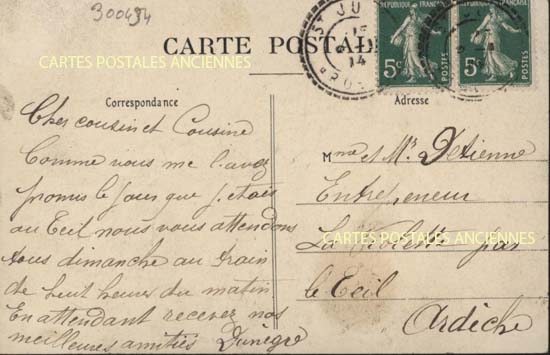 300494
CARTE POSTALE
ST JU
15
14
RHO
RÉPUBLIQUE FRANÇAISE
5c
POSTES
RÉPUBLIQUE FRANÇAISE
5c
POSTES
CARTES POSTALES ANCIENNES
Correspondance
Cher cousin et Cousine
Comme vous me l'avez
promis le jour que j'etais
au Teil nous vous attendons
tous dimanche au train
de huit heures du matin
En attendant recever nos
meilleures amitiés Dunègre
Adresse
Mme et Mr Detienne
Entrepreneur
La par
CARTES POSTALES ANCIENNES
le Teil
Ardèche